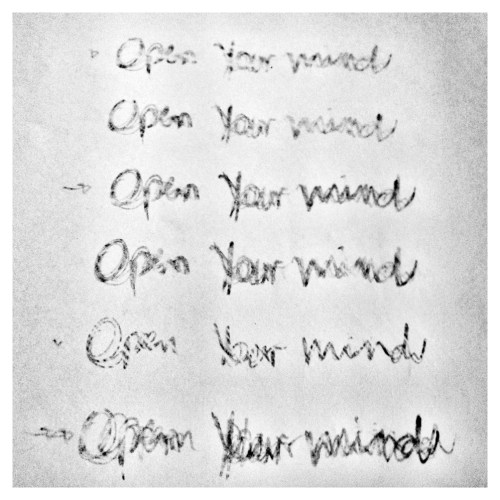 Open Your mind
Open Your mind
Open Your mind
Open Your mind
Open Your mind
Open Your mind